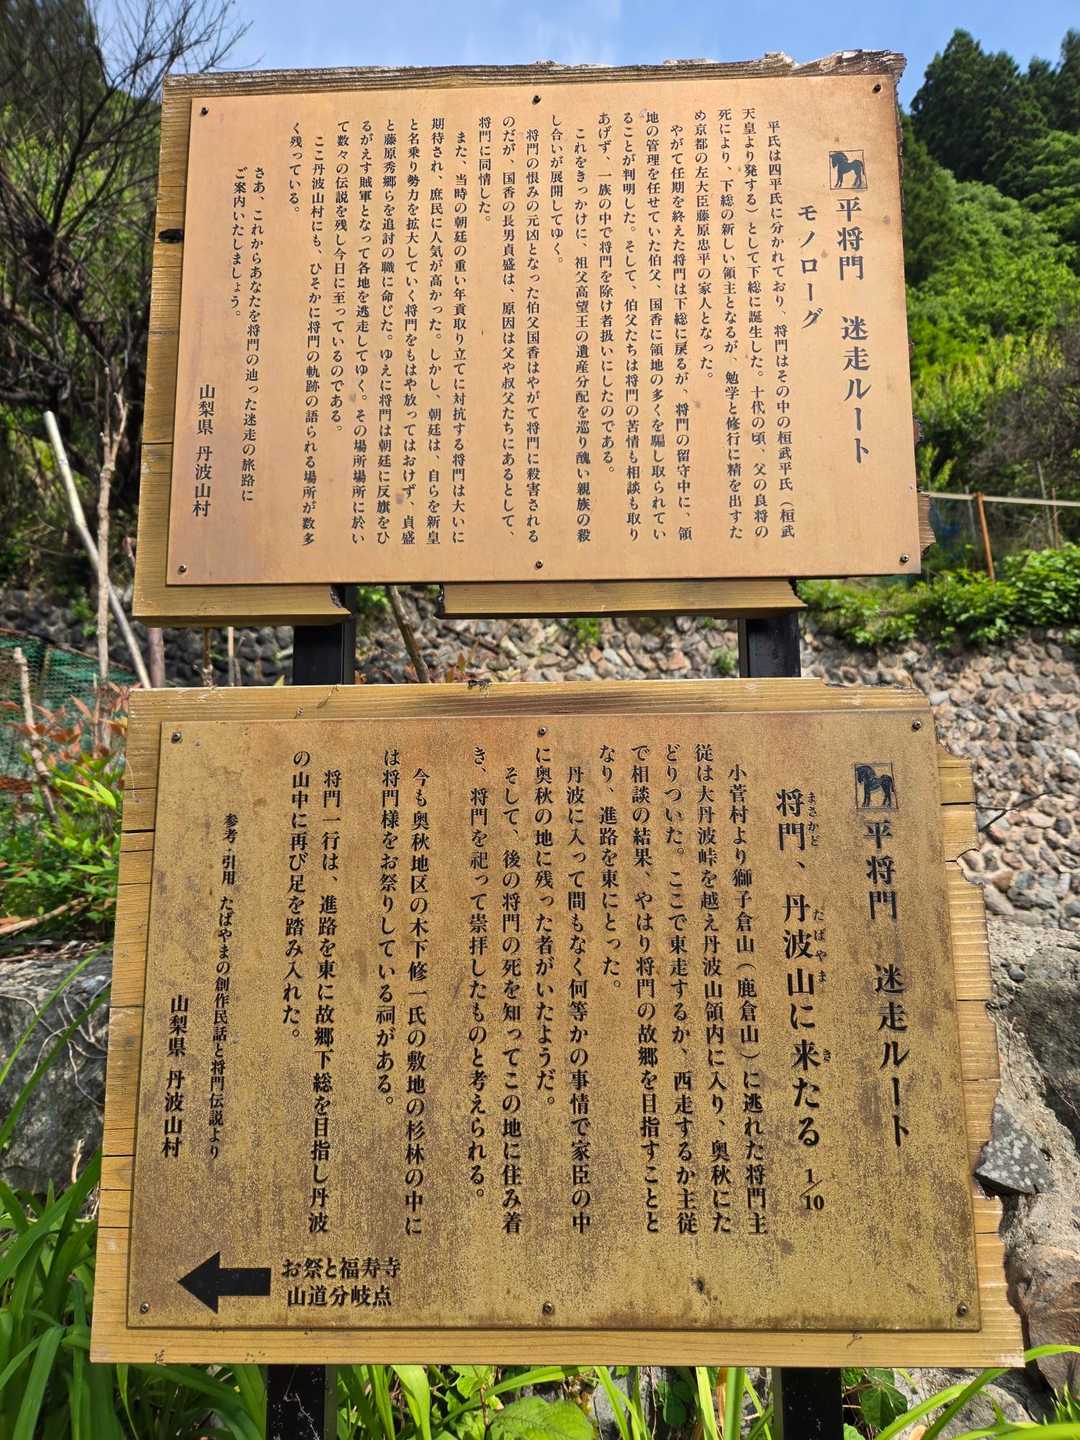 平将門 迷走ルート
モノローグ
平氏は四平氏に分かれており、将門はその中の桓武平氏（桓武
天皇より発する）として下総に誕生した。十代の頃、父の良将の
死により、下総の新しい領主となるが、勉学と修行に精を出すた
め京都の左大臣藤原忠平の家人となった。
やがて任期を終えた将門は下総に戻るが、将門の留守中に、領
地の管理を任せていた伯父、国香に領地の多くを騙し取られてい
ることが判明した。そして、伯父たちは将門の苦情も相談も取り
あげず、一族の中で将門を除け者扱いにしたのである。
これをきっかけに、祖父高望王の遺産分配を巡り醜い親族の殺
し合いが展開してゆく。
将門の恨みの元凶となった伯父国香はやがて将門に殺害される
のだが、国香の長男貞盛は、原因は父や叔父たちにあるとして、
将門に同情した。
また、当時の朝廷の重い年貢取り立てに対抗する将門は大いに
期待され、庶民に人気が高かった。しかし、朝廷は、自らを新皇
と名乗り勢力を拡大していく将門をもはや放ってはおけず、貞盛
と藤原秀郷らを追討の職に命じた。ゆえに将門は朝廷に反旗をひ
るがえす賊軍となって各地を逃走してゆく。その場所場所に於い
て数々の伝説を残し今日に至っているのである。
ここ丹波山村にも、ひそかに将門の軌跡の語られる場所が数多
く残っている。
さあ、これからあなたを将門の辿った迷走の旅路に
ご案内いたしましょう。
山梨県 丹波山村
平将門 迷走ルート
将門、丹波山に来たる 1/10
まさかど たばやま き
小菅村より獅子倉山（鹿倉山）に逃れた将門主
従は大丹波峠を越え丹波山領内に入り、奥秋にた
どりついた。ここで東走するか、西走するか主従
で相談の結果、やはり将門の故郷を目指すことと
なり、進路を東にとった。
丹波に入って間もなく何等かの事情で家臣の中
に奥秋の地に残った者がいたようだ。
そして、後の将門の死を知ってこの地に住み着
き、将門を祀って崇拝したものと考えられる。
今も奥秋地区の木下修一氏の敷地の杉林の中に
は将門様をお祭りしている祠がある。
将門一行は、進路を東に故郷下総を目指し丹波
の山中に再び足を踏み入れた。
参考・引用 たばやまの創作民話と将門伝説より
山梨県 丹波山村
お祭と福寿寺
山道分岐点